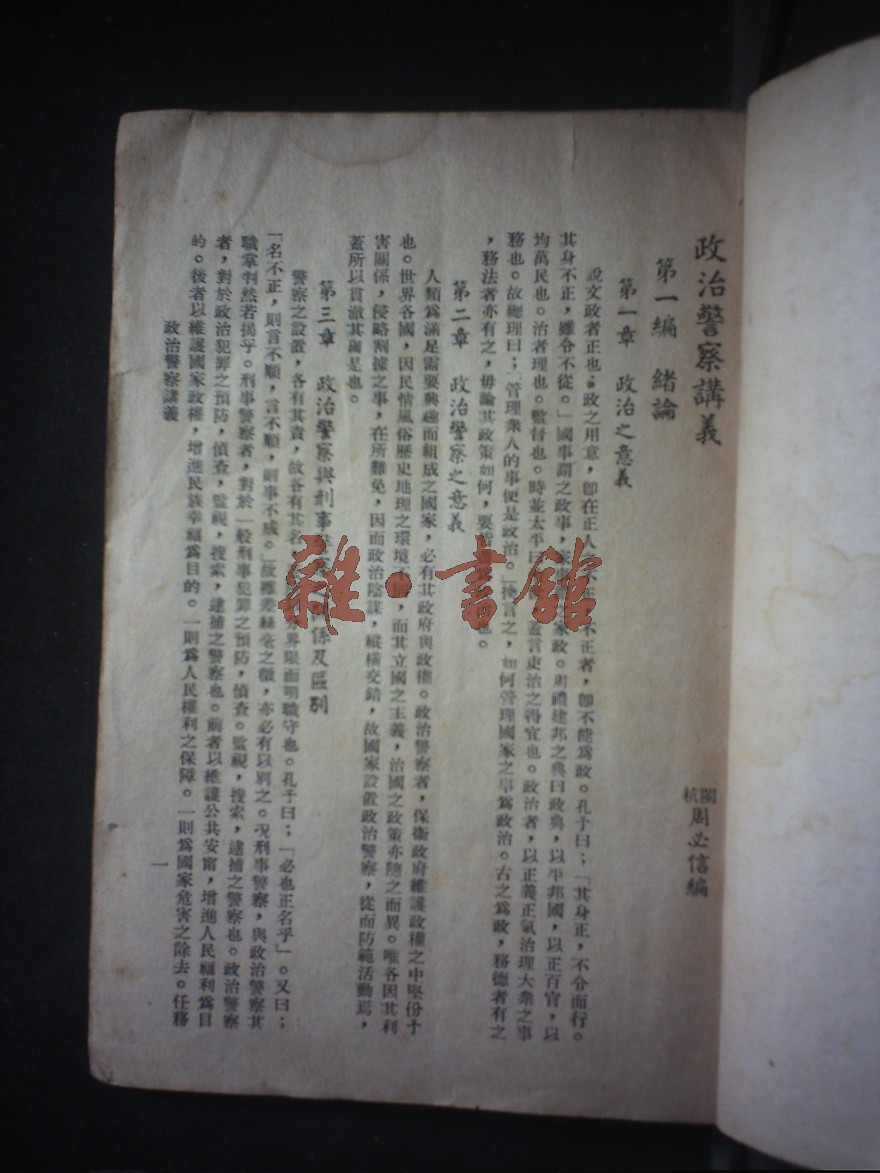 政治警察講義
閩杭周必信編
第一編 緒論
第一章 政治之意義
說文政者正也。政之用意，卽在正人之不正。不正者，卽不能爲政。孔子曰；「其身正，不令而行。
其身不正，雖令不從。」國事謂之政事，家政。周禮建邦之典曰政典，以平邦國，以正百官，以
均萬民也。治者理也。監督也。時並太平曰蓋言吏治之得宜也。政治者，以正義正氣治理大衆之事
務也。故總理曰；「管理衆人的事便是政治。」換言之，如何管理國家之事爲政治。古之爲政，務德者有之
，務法者亦有之，毋論其政策如何，要皆也。
第二章 政治警察之意義
人類爲滿足需要興趣而組成之國家，必有其政府與政權。政治警察者，保衛政府維護政權之中堅份子
也。世界各國，因民情風俗歷史地理之環境不同，而其立國之主義，治國之政策亦隨之而異。唯各因其利
害關係，侵略割據之事，在所難免，因而政治陰謀，縱橫交錯，故國家設置政治警察，從而防範活動焉，
蓋所以貫澈其國是也。
第三章 政治警察與刑事警察之關係及區別
警察之設置，各有其責，故各有其名，界限而明職守也。孔子曰；「必也正名乎」。又曰；
「名不正，則言不順，言不順，則事不成。」故雖差絲毫之微，亦必有以別之。况刑事警察，與政治警察其
職掌判然若揭乎。刑事警察者，對於一般刑事犯罪之預防，偵查。監視，搜索，逮捕之警察也。政治警察
者，對於政治犯罪之預防，偵查，監視，搜索，逮捕之警察也。前者以維護公共安甯，增進人民福利爲目
的。後者以維護國家政權，增進民族幸福爲目的。一則爲人民權利之保障。一則爲國家危害之除去。任務
政治警察講義
一
雜·書館